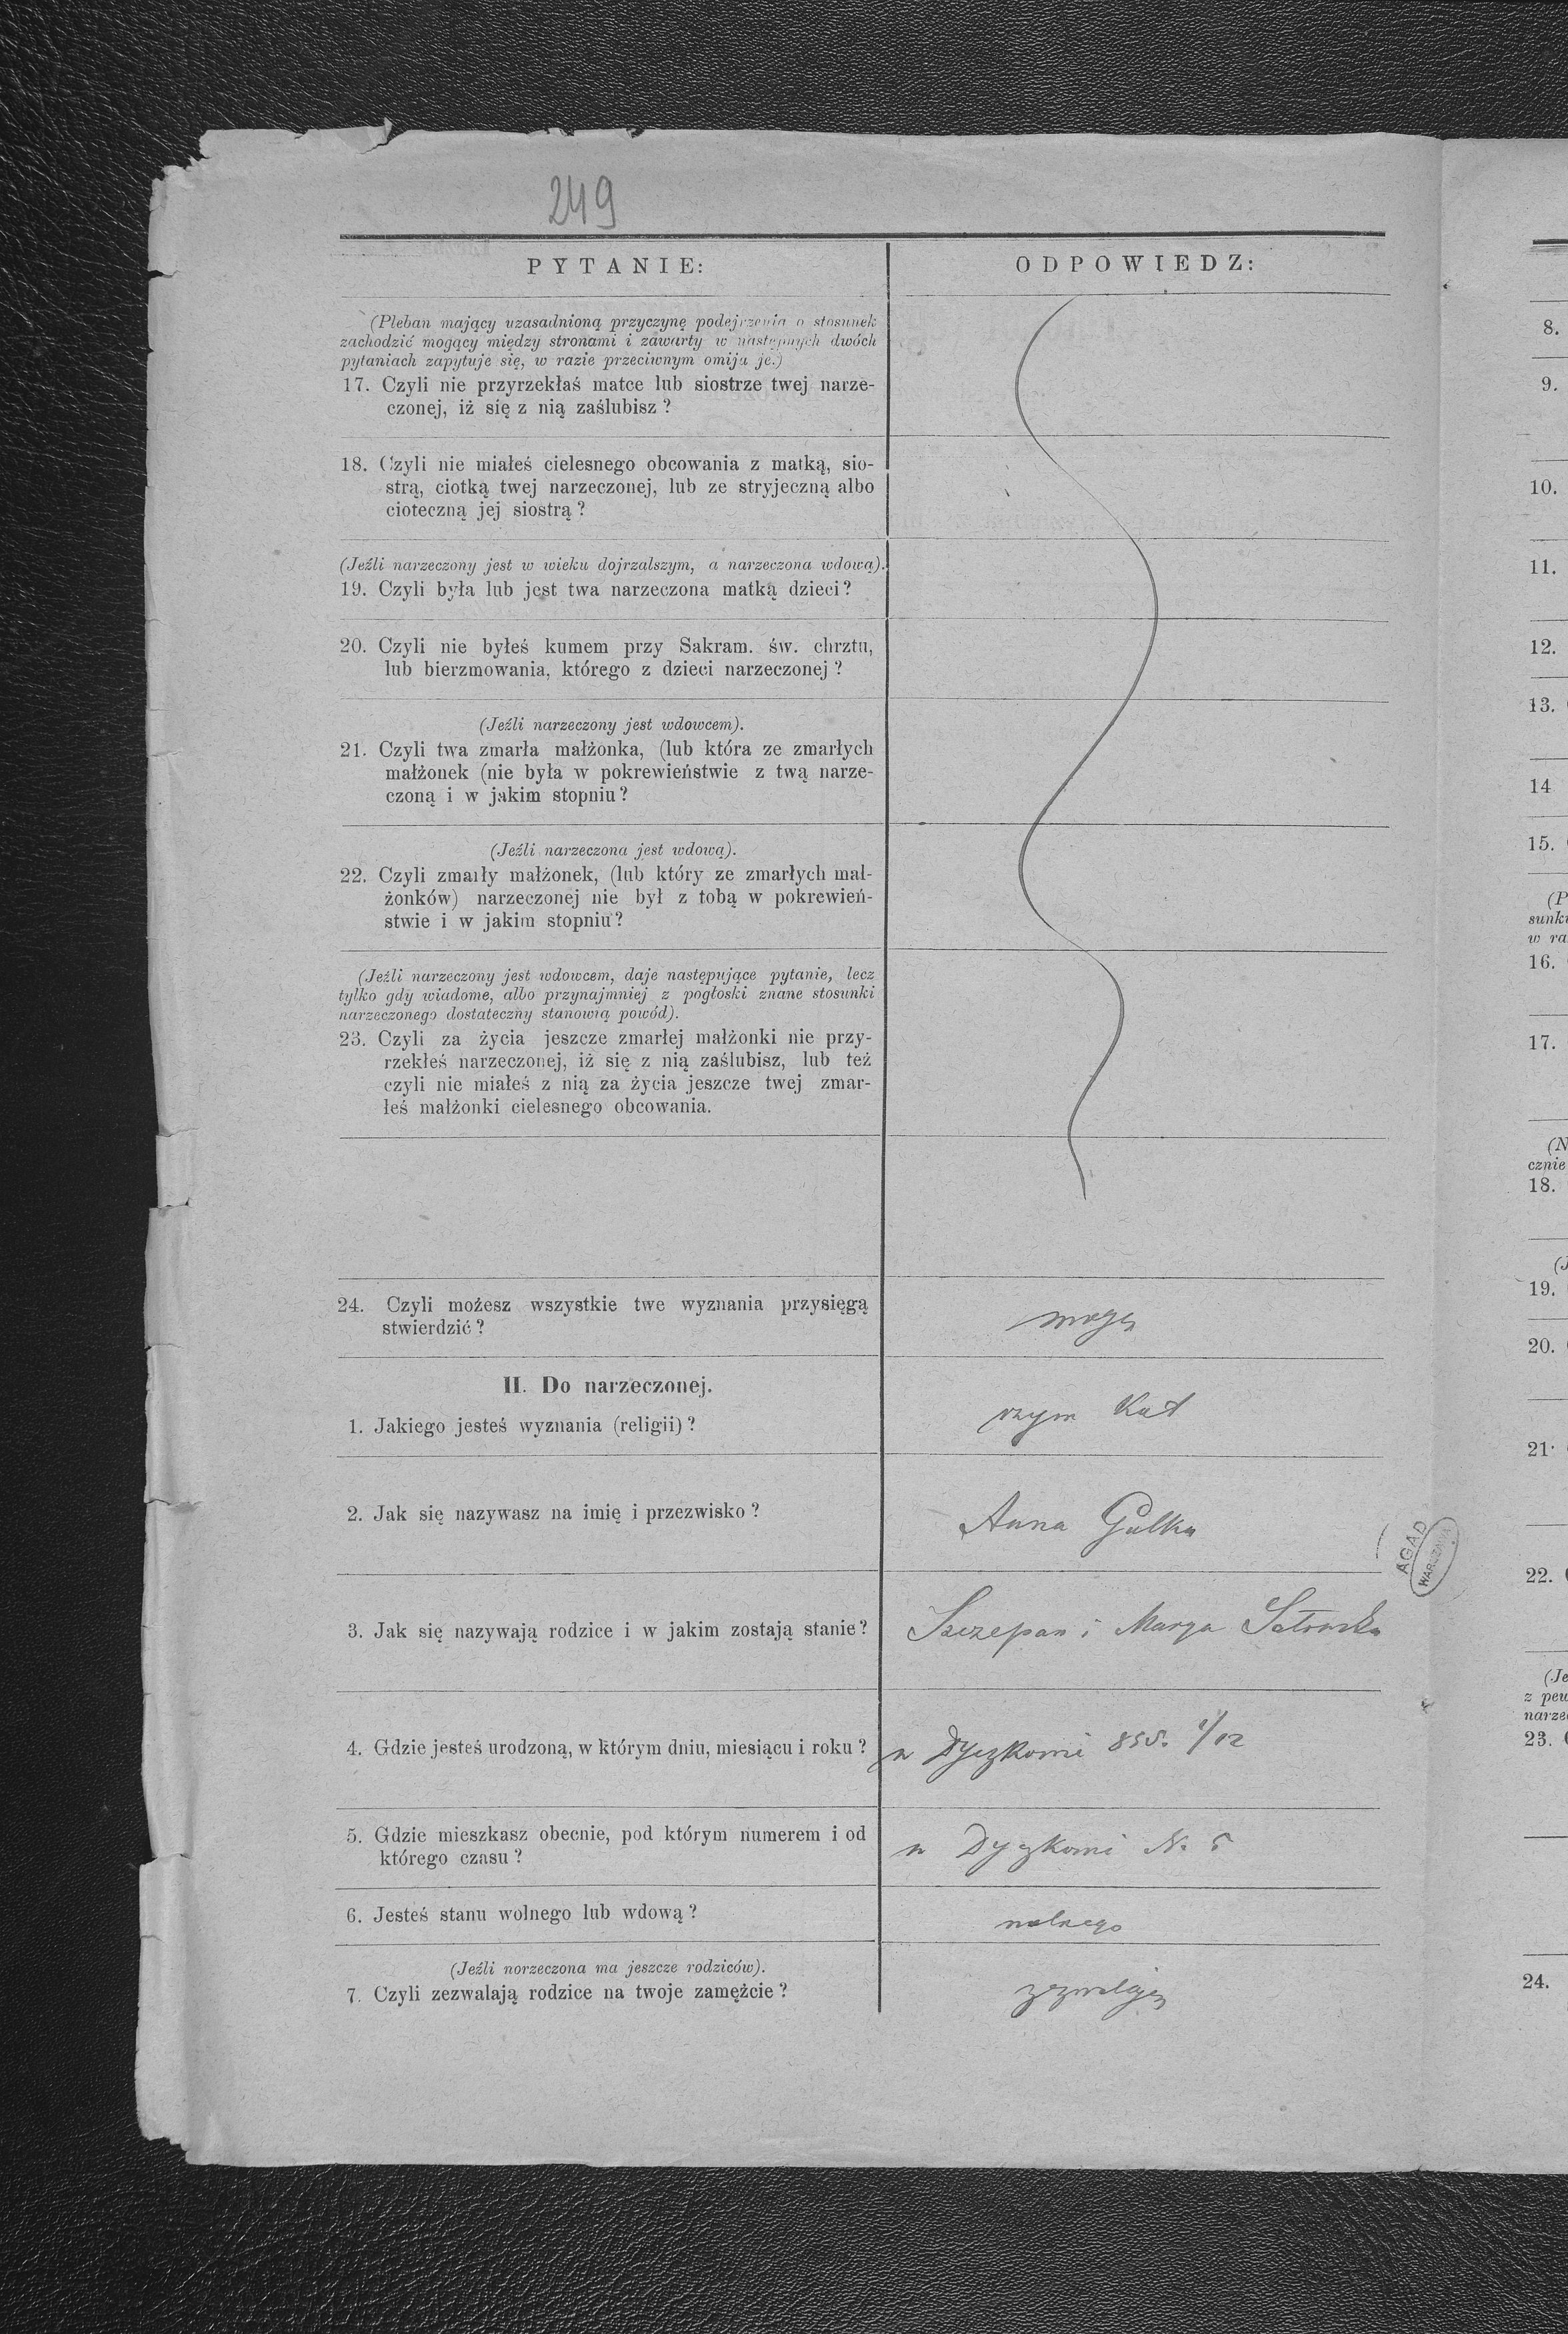 249
PYTANIE:
ODPOWIEDZ:
(Pleban mający uzasadnioną przyczynę podejrzenia o stosunek
zachodzić mogący między stronami i zawarty w następnych dwóch
pytaniach zapytuje się, w razie przeciwnym omija je.)
17. Czyli nie przyrzekłaś matce lub siostrze twej narze-
czonej, iż się z nią zaślubisz?
18. Czyli nie miałeś cielesnego obcowania z matką, sio-
strą, ciotką twej narzeczonej, lub ze stryjeczną albo
cioteczną jej siostrą?
(Jeźli narzeczony jest w wieku dojrzalszym, a narzeczona wdową).
19. Czyli była lub jest twa narzeczona matką dzieci?
20. Czyli nie byłeś kumem przy Sakram. św. chrztu,
lub bierzmowania, którego z dzieci narzeczonej?
(Jeźli narzeczony jest wdowcem).
21. Czyli twa zmarła małżonka, (lub która ze zmarłych
małżonek (nie była w pokrewieństwie z twą narze-
czoną i w jakim stopniu?
(Jeźli narzeczona jest wdową).
22. Czyli zmarły małżonek, (lub który ze zmarłych mał-
żonków) narzeczonej nie był z tobą w pokrewień-
stwie i w jakim stopniu?
(Jeźli narzeczony jest wdowcem, daje następujące pytanie, lecz
tylko gdy wiadome, albo przynajmniej z pogłoski znane stosunki
narzeczonego dostateczny stanowią powód).
23. Czyli za życia jeszcze zmarłej małżonki nie przy-
rzekłeś narzeczonej, iż się z nią zaślubisz, lub też
czyli nie miałeś z nią za życia jeszcze twej zmar-
łeś małżonki cielesnego obcowania.
24. Czyli możesz wszystkie twe wyznania przysięgą
stwierdzić?
mogę
II. Do narzeczonej.
1. Jakiego jesteś wyznania (religii)?
rzym Kat
2. Jak się nazywasz na imię i przezwisko?
Anna Gulka
3. Jak się nazywają rodzice i w jakim zostają stanie?
Szczepan i Marya
4. Gdzie jesteś urodzoną, w którym dniu, miesiącu i roku?
w Dyczkowie 1/12
5. Gdzie mieszkasz obecnie, pod którym numerem i od
którego czasu?
w Dyczkowi N. 5
6. Jesteś stanu wolnego lub wdową?
wolnego
(Jeźli norzeczona ma jeszcze rodziców).
7. Czyli zezwalają rodzice na twoje zamężcie?
zezwalają
AGAD
WARSZAWA
8.
9.
10.
11.
12.
13.
14
15.
(P
sunk
w ra
16.
17.
(N
cznie
18.
(J
19.
20.
21.
22.
(Je
z pew
narze
23.
24.